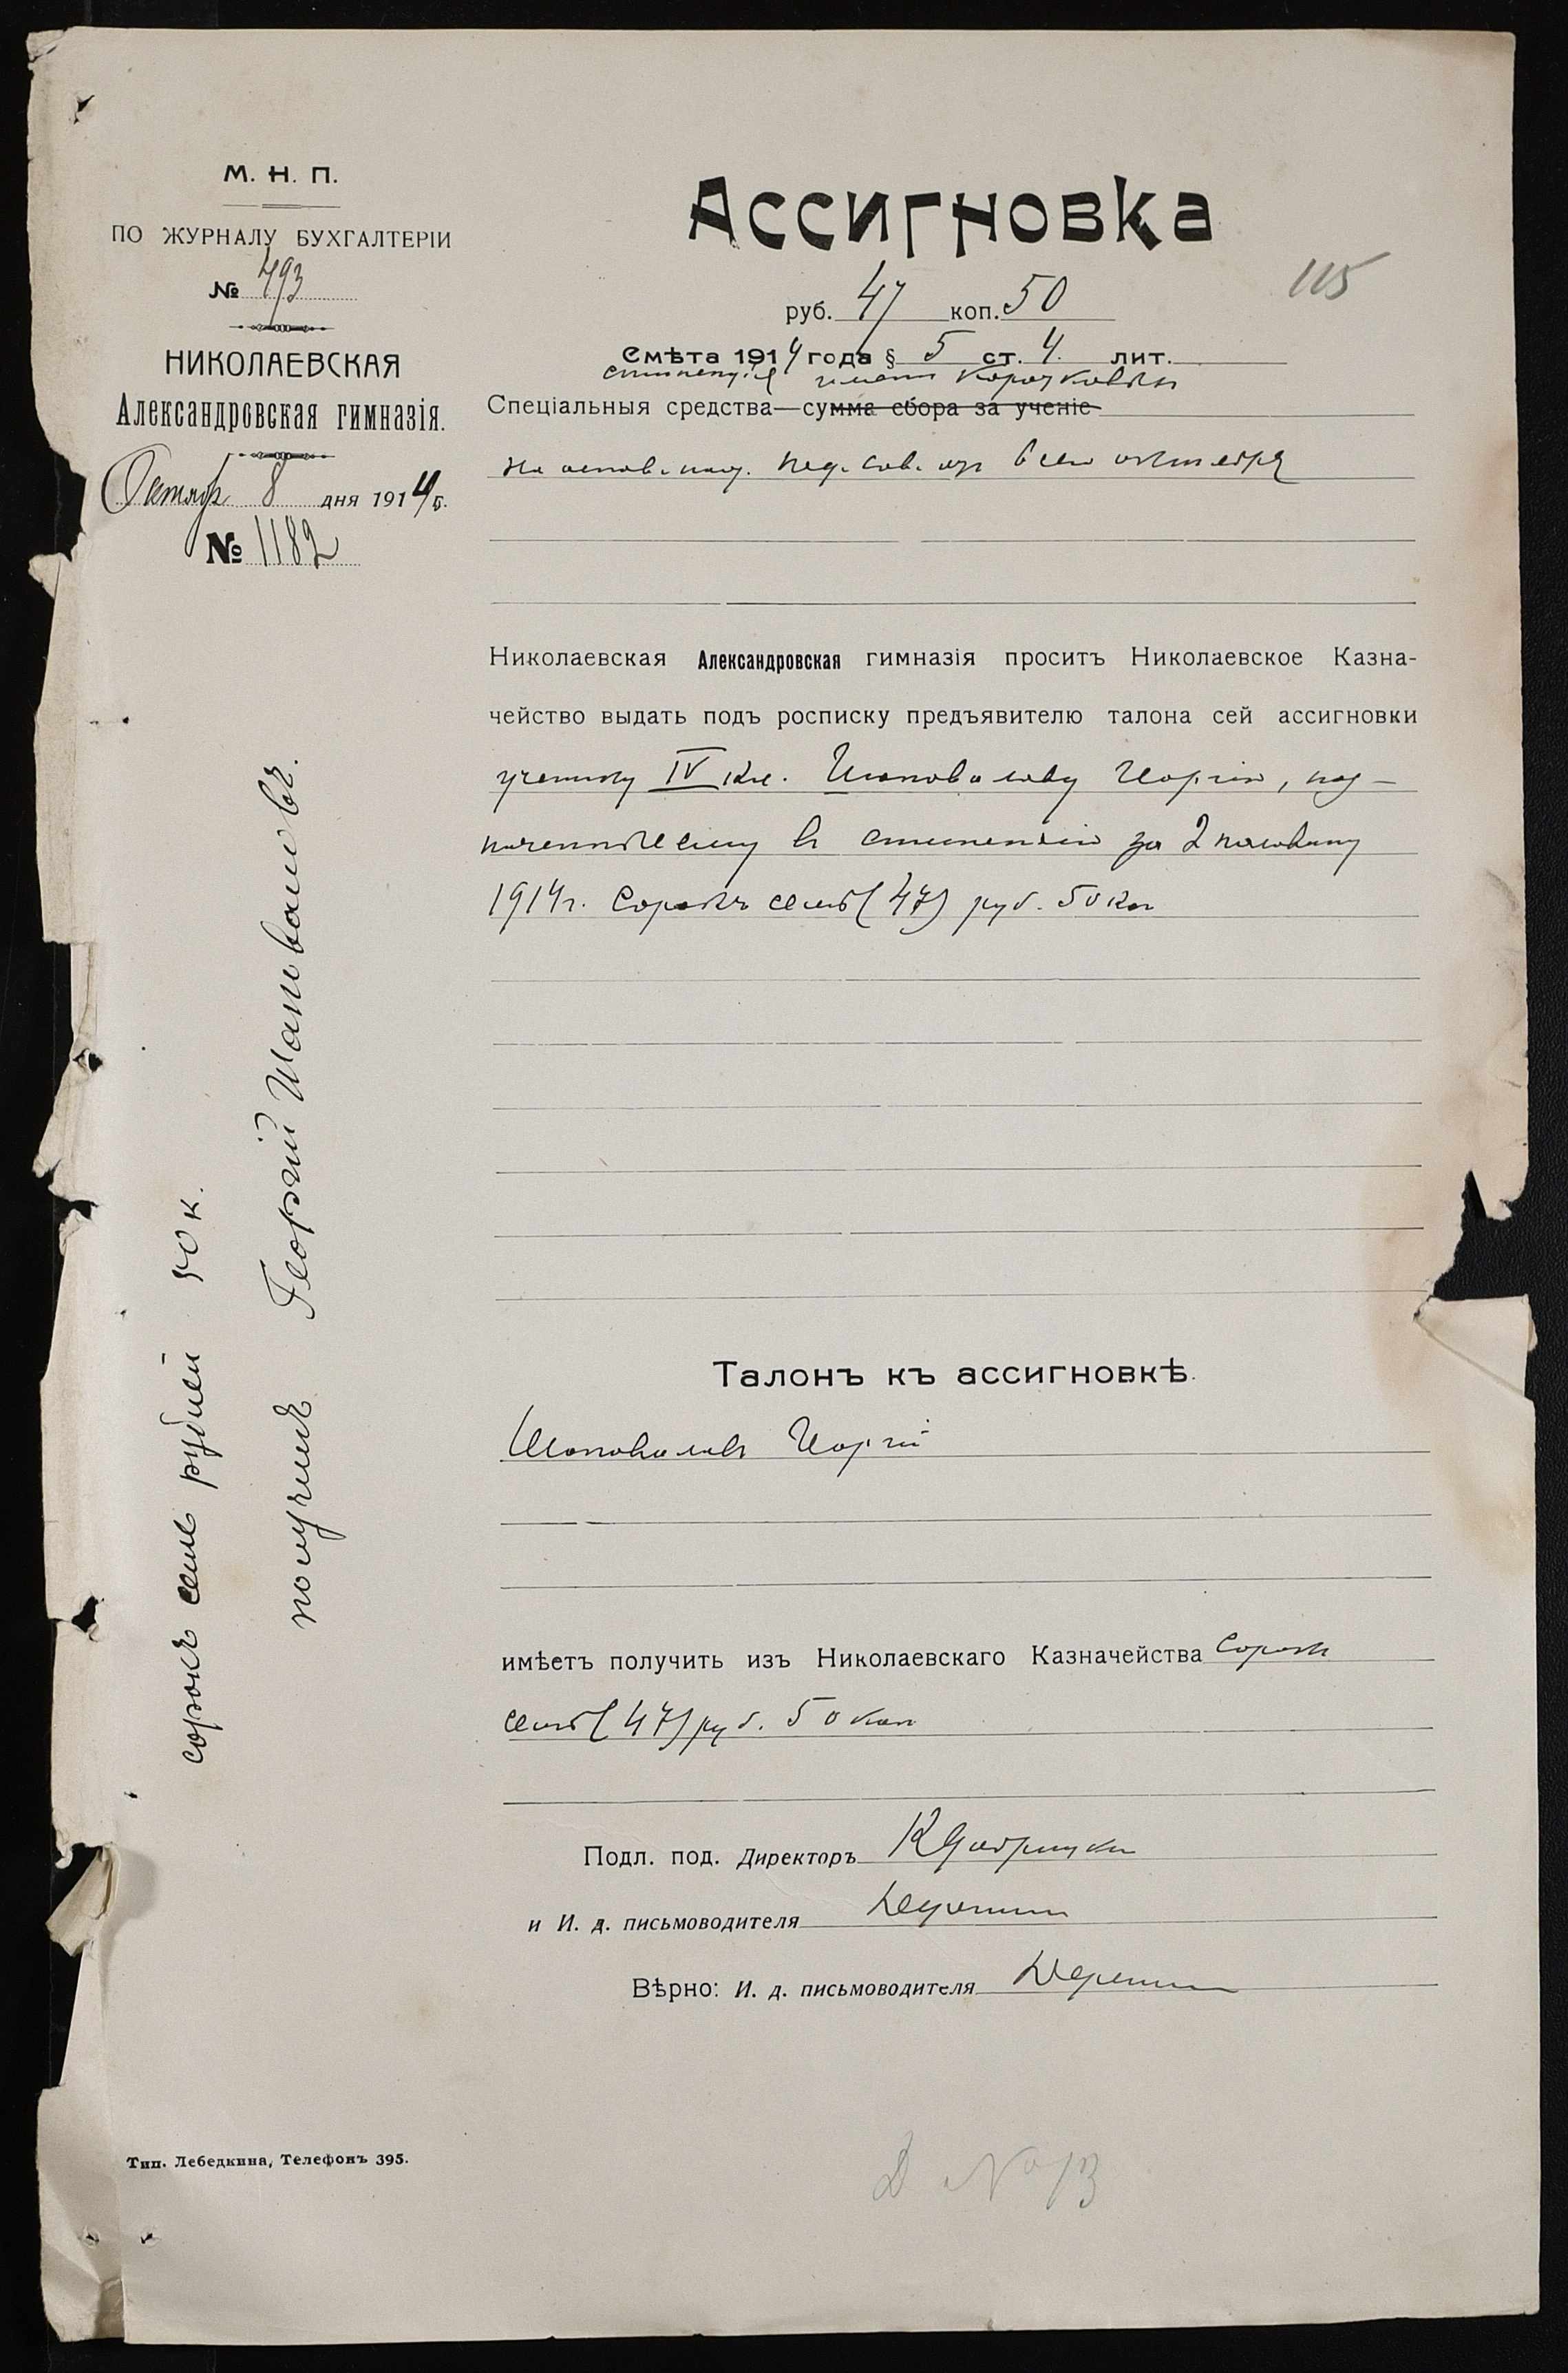 М. Н. П.
ПО ЖУРНАЛУ БУХГАЛТЕРІИ
№ 493
НИКОЛАЕВСКАЯ
Александровская гимназія.
Октябр 8 дня 1914 г.
№ 1182
Ассигновка
115
руб. 47 коп. 50
Смѣта 1914 года § 5 ст. 4. лит.
стипендія имени
Спеціальныя средства—сумма сбора за ученіе
На основ. пост. пед. сов. отъ 6 сего октября
Николаевская Александровская гимназія проситъ Николаевское Казна-
чейство выдать подъ росписку предъявителю талона сей ассигновки
ученику IV кл. Шаповалову Георгію,
въ стипендію за 2 половину
1914 г. Сорокъ семь (47) руб. 50 коп
сорокъ семь рублей 50 к.
получилъ Георгій Шаповаловъ.
Талонъ къ ассигновкѣ.
Шаповаловъ Георгій
имѣетъ получить изъ Николаевскаго Казначейства Сорокъ
семь (47) руб. 50 коп
Подл. под. Директоръ
и И. д. письмоводителя
Вѣрно: И. д. письмоводителя
Тип. Лебедкина, Телефонъ 395.
Д №13